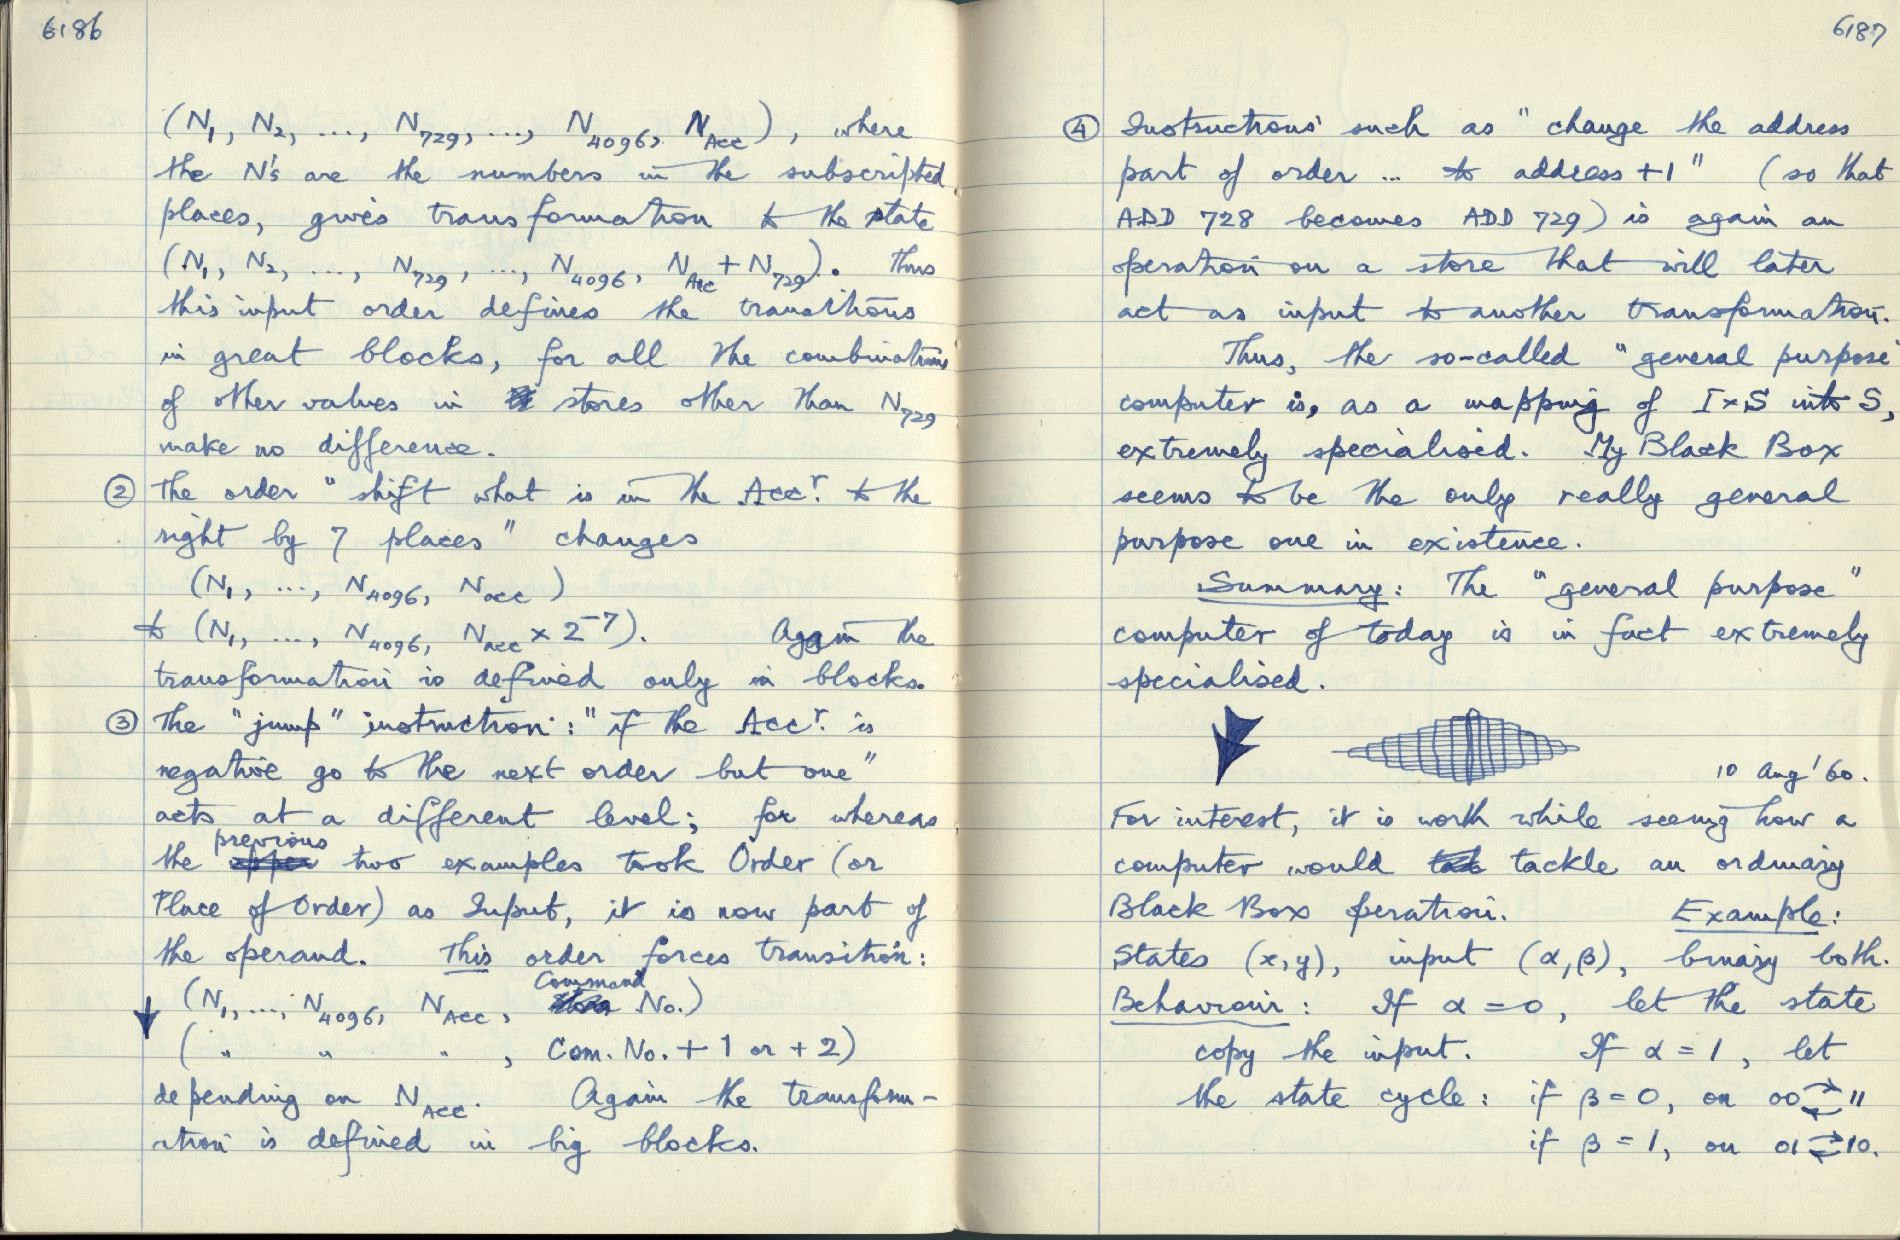 6186
(N1, N2, ..., N729, ..., N4096, NAcc), where
the N's are the numbers in the subscripted
places, gives transformation to the state
(N1, N2, ..., N729, ..., N4096, NAcc + N729). Thus
this input order defines the transitions
in great blocks, for all the combinations
of other values in stores other than N729
make no difference.
② The order "shift what is in the Accr. to the
right by 7 places" changes
(N1, ..., N4096, Nacc)
to (N1, ..., N4096, Nacc × 2⁻⁷). Again the
transformation is defined only in blocks.
③ The "jump" instruction: "if the Accr. is
negative go to the next order but one"
acts at a different level; for whereas
the previous two examples took Order (or
Place of Order) as Input, it is now part of
the operand. This order forces transition:
(N1, ..., N4096, NAcc, Command No.)
↓ ( " " " , Com. No. + 1 or + 2)
depending on NAcc. Again the transform-
ation is defined in big blocks.
6187
④ Instructions such as "change the address
part of order ... to address +1" (so that
ADD 728 becomes ADD 729) is again an
operation on a store that will later
act as input to another transformation.
Thus, the so-called "general purpose"
computer is, as a mapping of I×S into S,
extremely specialised. My Black Box
seems to be the only really general
purpose one in existence.
Summary: The "general purpose"
computer of today is in fact extremely
specialised.
10 Aug '60.
For interest, it is worth while seeing how a
computer would tackle an ordinary
Black Box operation. Example:
States (x,y), input (α,β), binary both.
Behaviour: If α = 0, let the state
copy the input. If α = 1, let
the state cycle: if β = 0, on 00 ⇄ 11
if β = 1, on 01 ⇄ 10.